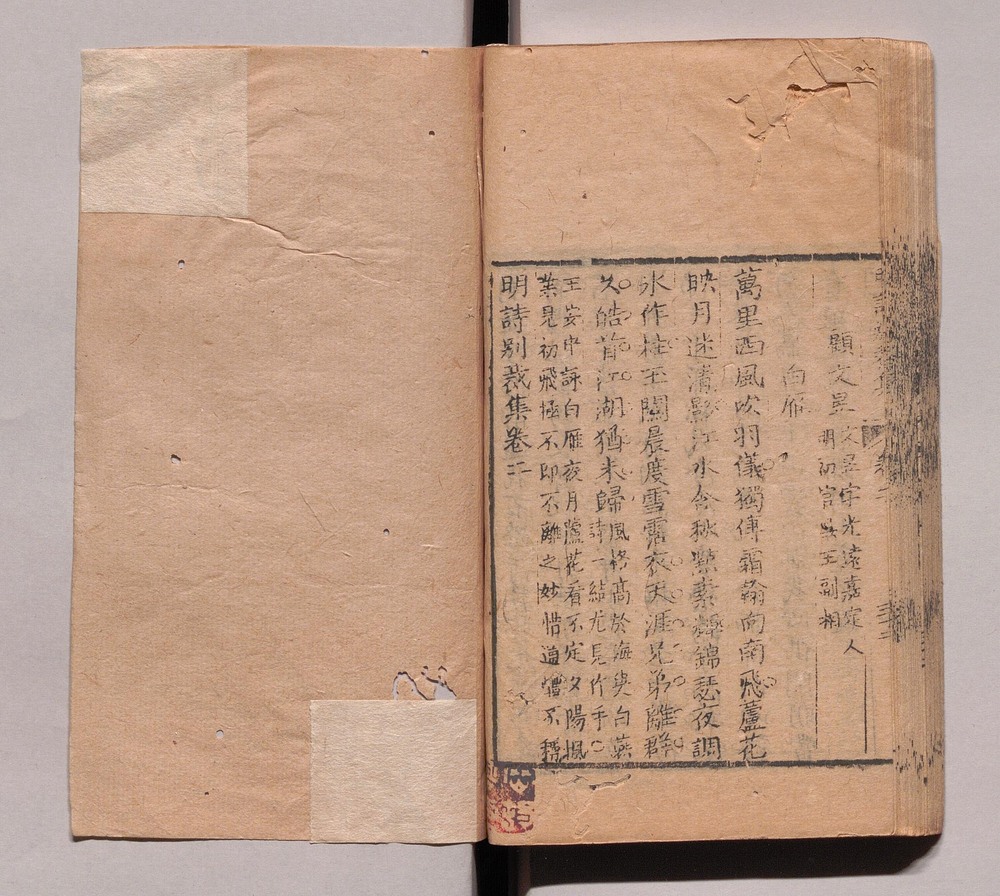 顧文昱文昱字光遠嘉定人
明初官吳王副相
白雁
萬里西風吹羽儀獨傳霜翰向南飛蘆花
映月迷清影江水含秋點素輝錦瑟夜調
氷作柱玉關晨度雪霑衣天涯兄弟離群
久皓首江湖猶未歸風格高於海叟白燕
詩一結尤見作手
王安中詠白雁夜月蘆花看不定夕陽楓
葉見初飛極不即不離之妙惜通體不稱
明詩別裁集卷二